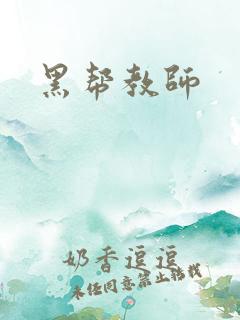 黑帮教师
奶香逗逗
未经同意禁止转载